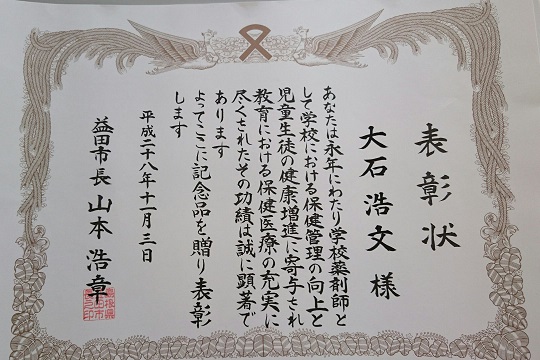 表彰状
大石浩文様
あなたは永年にわたり学校薬剤師と
して学校における保健管理の向上と
児童生徒の健康増進に寄与され
教育における保健医療の充実に
尽くされたその功績は誠に顕著で
あります
よってここに記念品を贈り表彰
します
平成二十八年十一月三日
益田市長 山本浩章